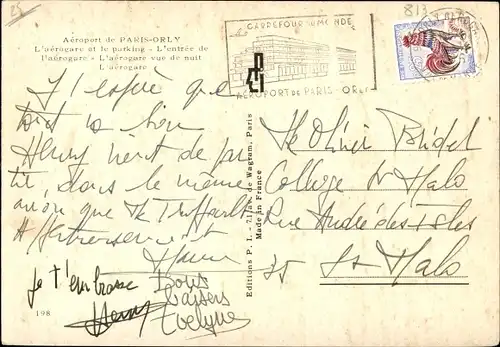 25
Aéroport de PARIS-ORLY
L'aérogare et le parking - L'entrée de
l'aérogare - L'aérogare vue de nuit
L'aérogare
CARREFOUR DU MONDE
AEROPORT DE PARIS ORLY
813
J'espère que
tout va bien
Henry vient de par
tir, dans le même
avion que
je t'embrasse
Bons
baisers
Evelyne
Henry
198
Editions P. I. - de Wagram, Paris
Made in France
Olivier Bridel
College St Malo
Rue André des iles
35 St Malo